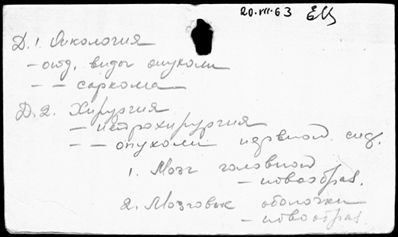 20.VII.63
Д.1. Онкология
– отд. виды опухоли
– – саркома
Д.2. Хирургия
– нейрохирургия
– – опухоли нервной сис.
1. Мозг головной
– новообраз.
2. Мозговые оболочки
– новообраз.